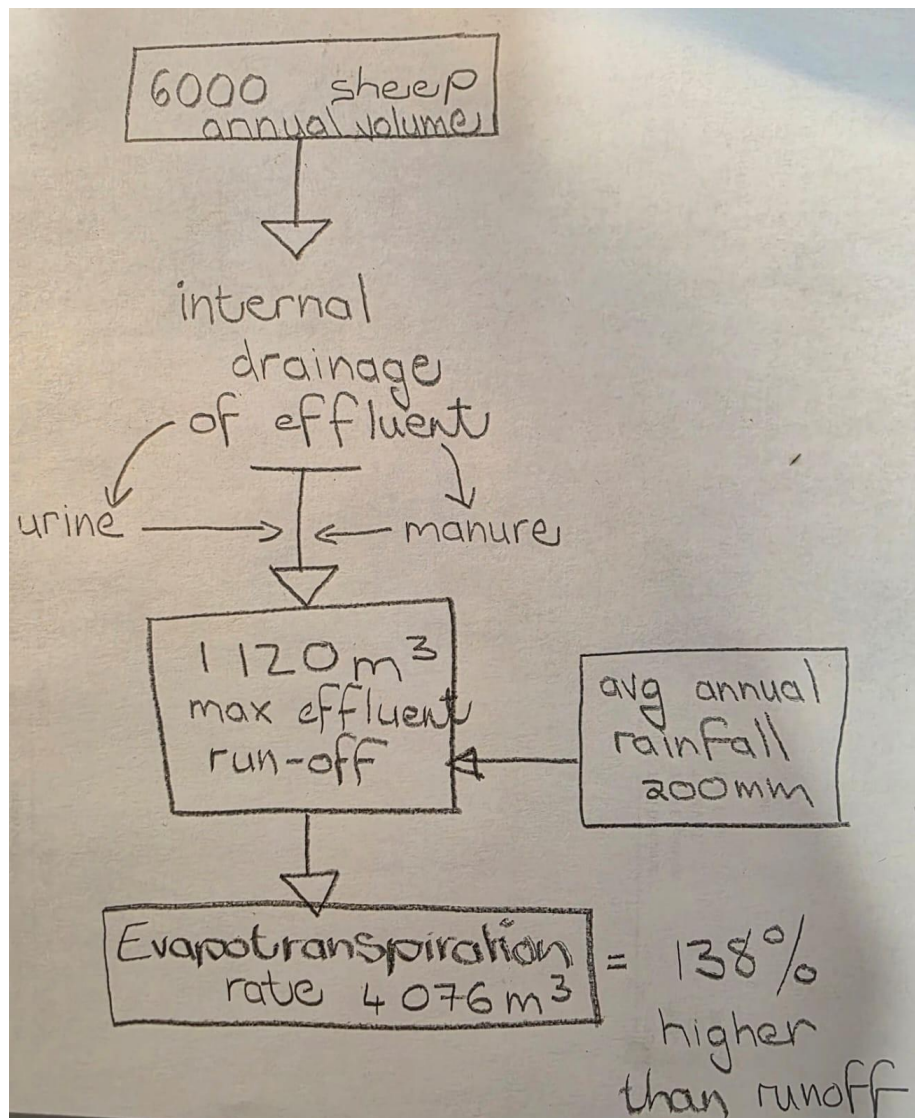 6000 sheep
annual volume
internal
drainage
of effluent
urine
manure
1 120 m³
max effluent
run-off
avg annual
rainfall
200mm
Evapotranspiration
rate 4 076 m³
= 138%
higher
than runoff